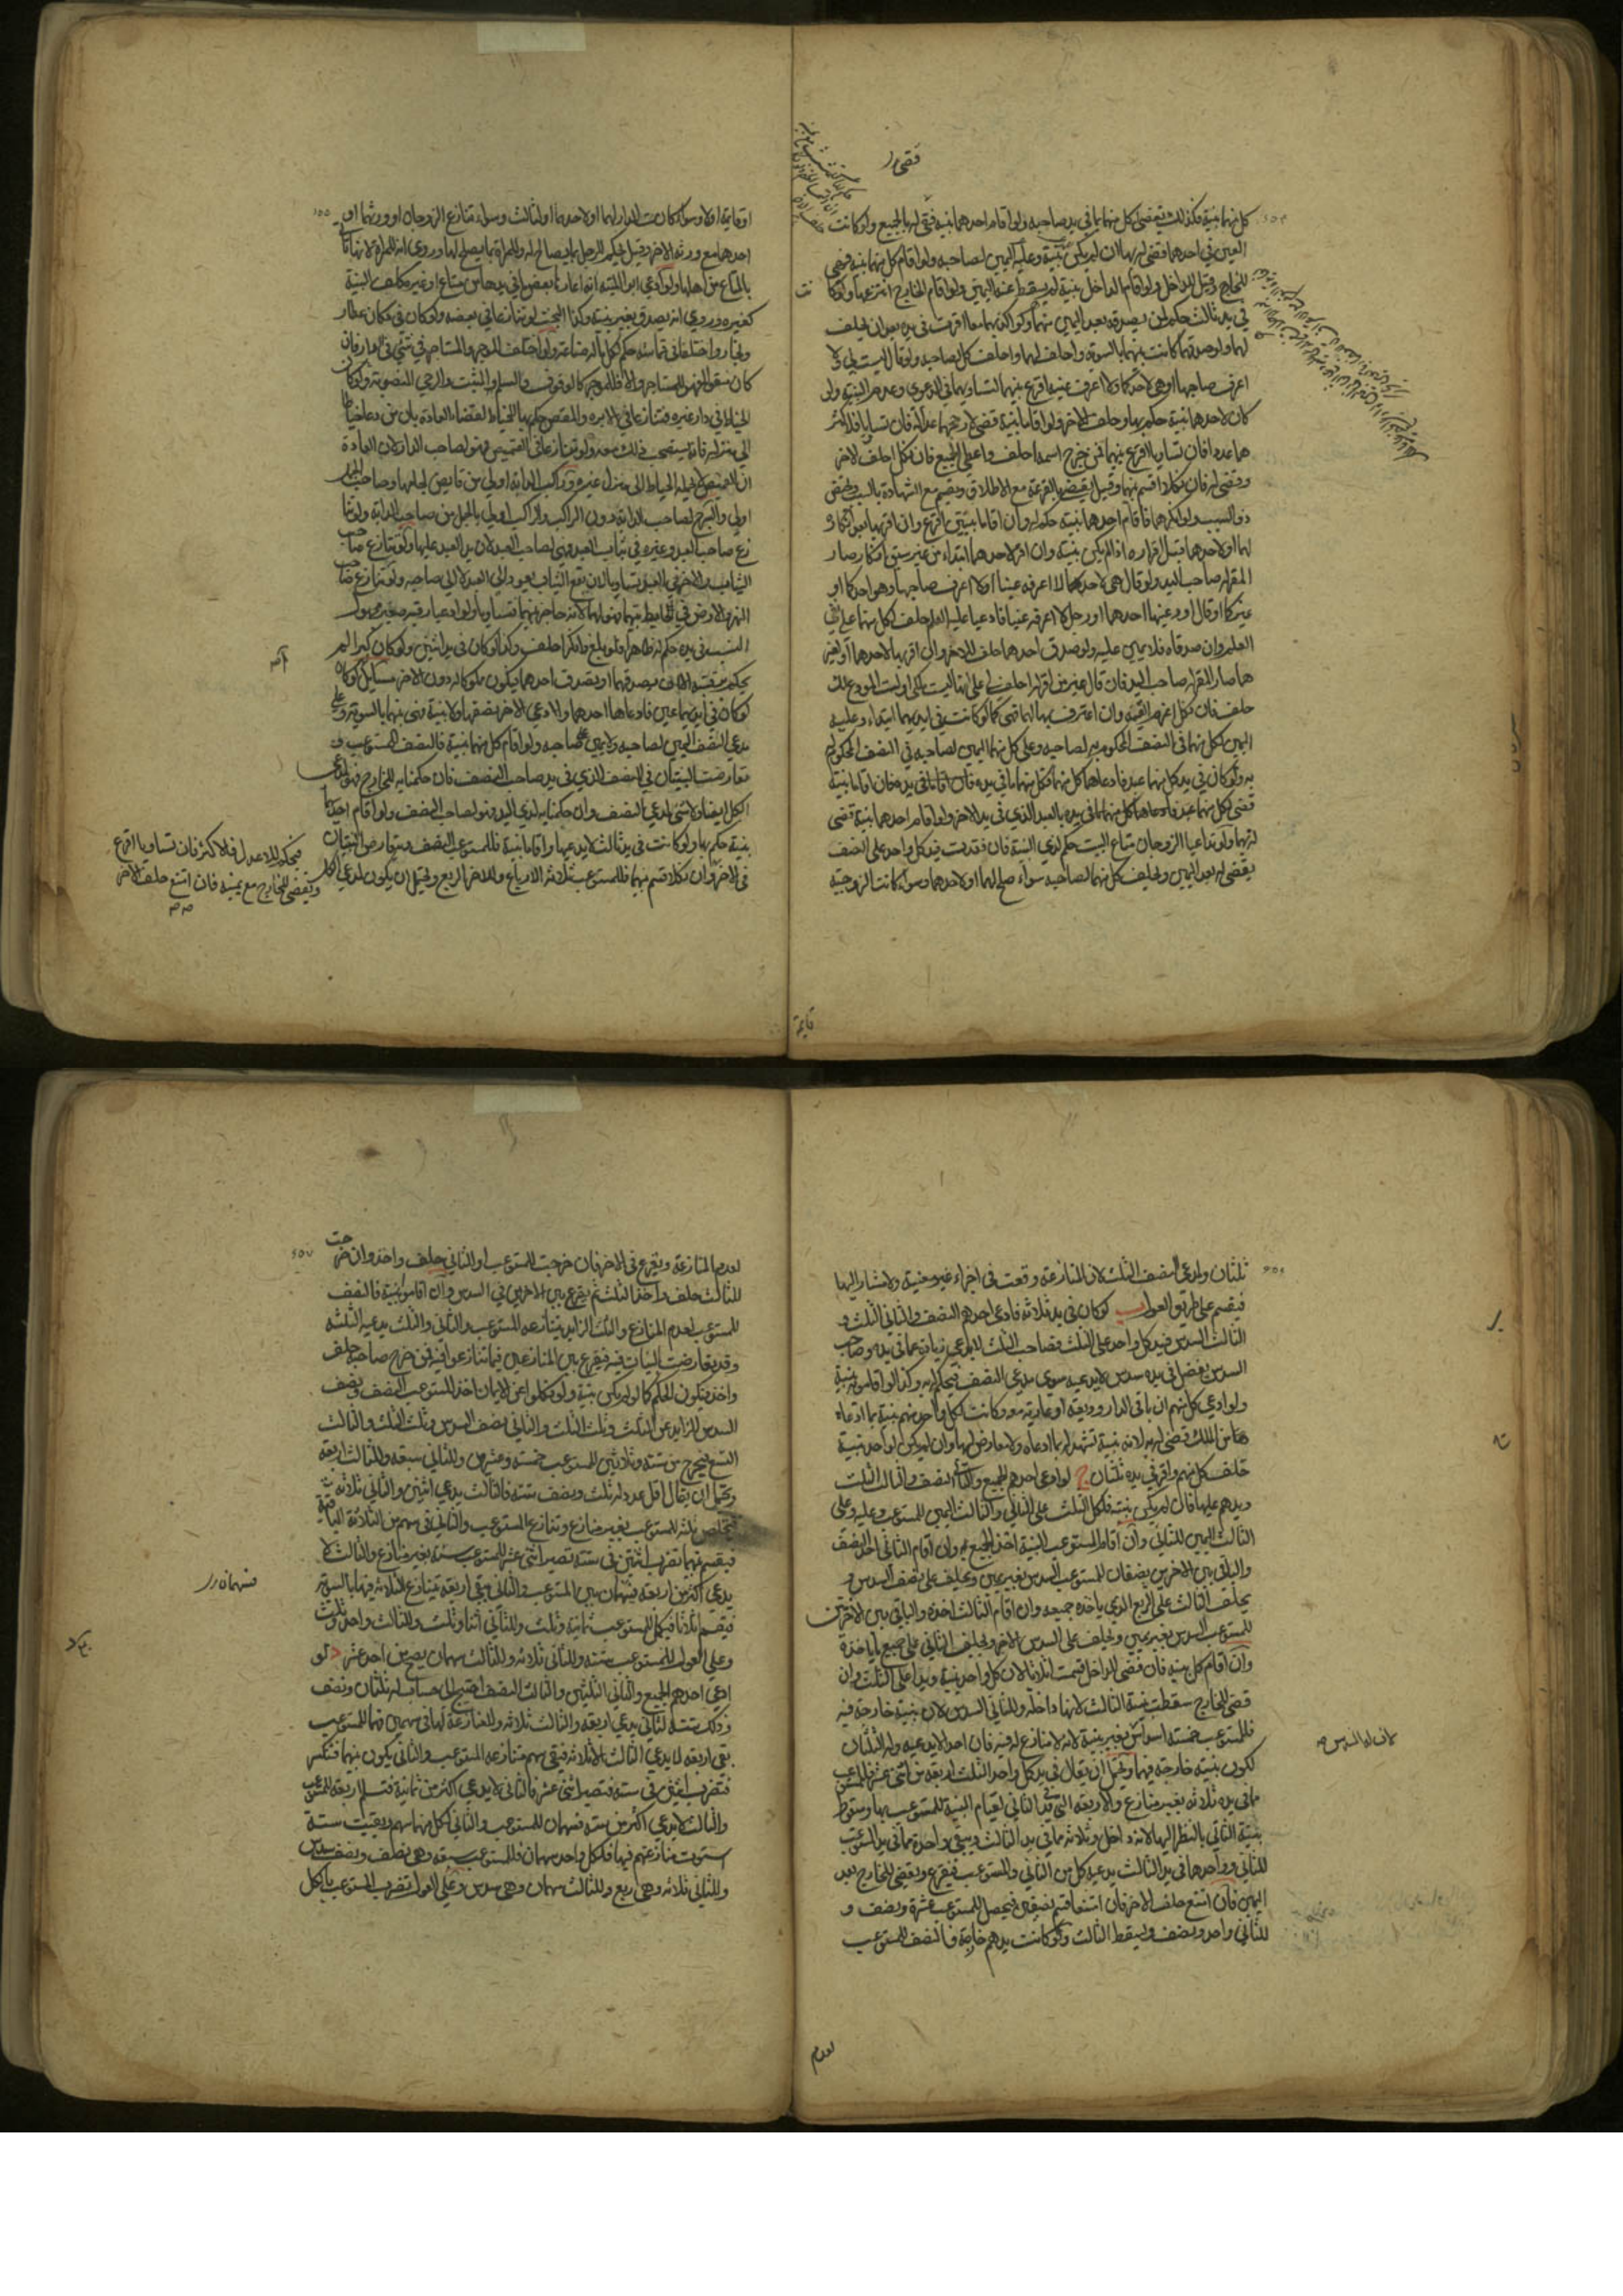 كل منهما بنية فكذلك يقضى لكل منهما بما في يد صاحبه ولو اقام احدهما بنية قضى له بالجميع ولو كانت
العين في احدهما قضى له بها ان لم يكن بنية وعليه اليمين لصاحبه ولو اقام كل منهما بنية قضى
للخارج وقيل للداخل ولو اقام الداخل بنية لم يسقط عنه اليمين ولو اقام الخارج انتزعها ولو كانا
في يد ثالث حكم لمن يصدقه بعد اليمين منهما ولو اكذبهما معا اقرت في يده بعد ان يحلف
لهما ولو صدقهما كانت بينهما بالسوية واحلف لهما واحلف كل لصاحبه ولو قال ليست لي ولا
اعرف صاحبها او هي لاحدكما ولا اعرف عينه اقرع بينهما لتساويهما في الدعوى وعدم البنية ولو
كان لاحدهما بنية حكم بها وحلف الاخر ولو اقاما بنية قضى لارجحهما عدالة فان تساويا فلاكثر
هما عددا فان تساويا اقرع بينهما فمن خرج اسمه احلف واعطي الجميع فان نكل احلف الاخر
وقضى له فان نكلا قسم بينهما وقيل يقضى بالقرعة مع الاطلاق ويقسم مع الشهادة بالسبب ويختص
ذو السبب ولو انكرهما فاقام احدهما بنية حكم له وان اقاما بينتين اقرع وان اقر بها بعد انكاره
لهما او لاحدهما قبل اقراره اذا لم يكن بنية وان اقر لاحدهما ابتداء من غير سبق انكار صار
المقر له صاحب اليد ولو قال هي لاحدكما لا اعرفه عينا او لا اعرف صاحبها وهو احدكما او
غيركما او قال اودعنيها احدهما او رجل لا اعرفه عينا فادعيا عليه العلم حلف لكل منهما على نفي
العلم وان صدقاه فلا يمين عليه ولو صدق احدهما حلف للاخر وان اقر بها لاحدهما او لغير
هما صار المقر له صاحب اليد فان قال غير من اقر له احلف لي على انها ليست ملكي او لست المودع لك
حلف فان نكل اغرم القيمة وان اعترف بها لهما فهي كما لو كانت في ايديهما ابتداء وعليه
اليمين لكل منهما في النصف المحكوم به لصاحبه وعلى كل منهما اليمين لصاحبه في النصف المحكوم له
به ولو كان في يد كل منهما عبد فادعاهما كل منهما فلكل منهما ما في يده فان اقاما بنية
قضى لكل منهما بالعبد الذي في يد الاخر ولو اقام احدهما بنية قضى
له بهما ولو تداعيا الزوجان متاع البيت حكم لذي البنية فان فقدت فيد كل واحد على النصف
يقضى له بعد اليمين ويحلف كل منهما لصاحبه سواء صلح لهما او لاحدهما وسواء كانت الزوجية
قايمة
اوقايمة اولا وسواء كانت الدار لهما او لاحدهما او لثالث وسواء تنازع الزوجان او ورثتهما او
احدهما مع ورثة الاخر وقيل يحكم للرجل بما يصلح له وللمراة بما يصلح لها وروي انه للمراة لانها تاتي
بالمتاع من اهلها ولو ادعى ابو الميتة انه اعارها بعض ما في يدها من متاع او غيره كلف البنية
كغيره وروي انه يصدق بغير بنية وكذا البحث لو تنازعا في بعضه ولو كان في دكان عطار
ونجار واختلفا في قماشه حكم لكل بالة صناعته ولو اختلف الموجر والمستاجر في شيء في الدار فان
كان منقولا فهو للمستاجر والا فللموجر كالرفوف والسلم المثبت والرحى المنصوبة ولو كان
الخياط في دار غيره فتنازعا في الابرة والمقص حكم بها للخياط لقضاء العادة بان من دعا خياطا
الى منزله فانه يستصحب ذلك معه ولو تنازعا في القميص فهو لصاحب الدار لان العادة
ان القميص لا يحمله الخياط الى منزل غيره وراكب الدابة اولى من قابض لجامها وصاحب الحمل
اولى والسرج لصاحب الدابة دون الراكب والراكب اولى بالحمل من صاحب الدابة ولو تنا
زع صاحب العبد وغيره في ثياب العبد فهي لصاحب العبد لان يد العبد عليها ولو تنازع صاحب
الثياب والاخر في العبد تساويا لان نفع الثياب يعود الى العبد لا الى صاحبه ولو تنازع صاحب
النهر والارض في الحايط بينهما فهو لهما لانه حاجز بينهما فتساويا ولو ادعيا رقية صغير مجهول
النسب في يده حكم له ظاهرا ولو بلغ وانكر احلف وكذا لو كان في يد اثنين ولو كان كبيرا لم
يحكم برقيته الا ان يصدقهما او يصدق احدهما فيكون مملوكا له دون الاخر مسايل
لو كان في ايديهما عين فادعاها احدهما وادعى الاخر نصفها ولا بنية فهي بينهما بالسوية وعلى
مدعي النصف اليمين لصاحبه ولا يمين على صاحبه ولو اقام كل منهما بنية فالنصف للمستوعب و
تعارضت البينتان في النصف الذي في يد صاحب النصف فان حكمنا به للخارج فهو لمدعي
الكل ايضا ولا شيء لمدعي النصف وان حكمنا به لذي اليد فهو لصاحب النصف ولو اقام احدهما
بنية حكم بها ولو كانت في يد ثالث لا يدعيها واقاما بنية فللمستوعب النصف وتعارض البنيتان
في الاخر وان نكلا قسم بينهما فللمستوعب ثلاثة الارباع وللاخر الربع ويحتمل ان يكون لمدعي الكل
فيحكم للاعدل فالاكثر فان تساويا اقرع
ويقضى للخارج مع يمينه فان امتنع حلف الاخر
ثلثان ولمدعي النصف الثلث لان المنازعة وقعت في اجزاء غير معينة ولا مشار اليها
فيقسم على طريق العول ب لو كان في يد ثلاثة فادعى احدهم النصف والثاني الثلث و
الثالث السدس فيد كل واحد على الثلث فصاحب الثلث لا يدعي زيادة عما في يده وصاحب
السدس يفضل في يده سدس لا يدعيه سوى مدعي النصف فيحكم له به وكذا لو اقاموا بنية
ولو ادعى كل منهم ان باقي الدار وديعة او عارية معه وكانت لكل واحد منهم بنية بما ادعاه
من الملك قضى له به لانه بنية تشهد له بما ادعاه ولا معارض لها وان لم يكن لواحد بنية
حلف كل منهم واقر في يده ثلثان ج لو ادعى احدهم الجميع والثاني النصف والثالث الثلث
ويدهم عليها فان لم يكن بنية فلكل الثلث وعلى الثاني والثالث اليمين للمستوعب وعليه وعلى
الثالث اليمين للثاني وان اقام المستوعب البنية اخذ الجميع وان اقام الثاني اخذ النصف
والباقي بين الاخرين نصفان للمستوعب السدس بغير يمين ويحلف على نصف السدس و
يحلف الثالث على الربع الذي ياخذه جميعه وان اقام الثالث اخذه والباقي بين الاخرين
للمستوعب السدس بغير يمين ويحلف على السدس الاخر ويحلف الثاني على جميع ما ياخذه
وان اقام كل بنية فان قضى للداخل قسمت اثلاثا لان لكل واحد بنية ويدا على الثلث وان
قضى للخارج سقطت بنية الثالث لانها داخلة وللثاني السدس لان بنيته خارجة فيه
فللمستوعب خمسة اسداس بغير بنية لانه لا منازع له فيه فان احدا لا يدعيه وله الثلثان
لكون بنيته خارجة فيهما ويحتمل ان يقال في يد كل واحد الثلث اربعة من اثني عشر فللمستوعب
مما في يده ثلاثة بغير منازع والاربعة التي في يد الثاني لقيام البنية للمستوعب بها وسقوط
بنية الثاني بالنظر اليها لانه داخل وثلاثة مما في يد الثالث ويبقى واحد مما في يد المستوعب
للثاني وواحد مما في يد الثالث يدعيه كل من الثاني والمستوعب فيقرع ويقضى للخارج بعد
اليمين فان امتنع حلف الاخر فان امتنعا قسم نصفين فيحصل للمستوعب عشرة ونصف و
للثاني واحد ونصف ويسقط الثالث ولو كانت يدهم خارجة فالنصف للمستوعب
لعدم
لعدم المنازعة ويقرع في الاخر فان خرجت للمستوعب او للثاني حلف واخذ وان خرجت
للثالث حلف واخذ الثلث ثم يقرع بين الاخرين في السدس وان اقاموا بنية فالنصف
للمستوعب لعدم المنازع والسدس الزايد يتنازعه المستوعب والثاني والثلث يدعيه الثلثة
وقد تعارضت البينات فيه فيقرع بين المتنازعين فيما تنازعوا فيه فمن خرج صاحبه حلف
واخذ ويكون الحكم كما لو لم يكن بنية ولو نكلوا عن الايمان اخذ المستوعب النصف ونصف
السدس الزايد عن الثلث وثلث الثلث والثاني نصف السدس وثلث الثلث والثالث
التسع فيخرج من ستة وثلاثين للمستوعب خمسة وعشرون وللثاني سبعة وللثالث اربعة
ويحتمل ان يقال اقل عدد له ثلث ونصف ستة فالثالث يدعي اثنين والثاني ثلاثة
فيخلص ثلثة للمستوعب بغير منازع وتنازع المستوعب والثاني في سهم من الثلاثة الباقية
فيقسم بينهما تضرب اثنين في ستة تصير اثني عشر للمستوعب ستة بغير منازع والثالث لا
يدعي اكثر من اربعة فسهمان بين المستوعب والثاني وتبقى اربعة يتنازع الثلاثة فيها بالسوية
فيقسم اثلاثا فيكمل للمستوعب ثمانية وثلث وللثاني اثنا وثلث وللثالث واحد وثلث
وعلى العول للمستوعب ستة وللثاني ثلاثة وللثالث سهمان يصح من احد عشر د لو
ادعى احدهم الجميع والثاني الثلثين والثالث النصف احتيج الى حساب له ثلثان ونصف
وذلك ستة للثاني يدعي اربعة والثالث ثلاثة والمنازعة لهما في سهمين فهما للمستوعب
بقي اربعة لا يدعي الثالث الا ثلاثة فيبقى سهم تنازعه المستوعب والثاني يكون بينهما فتكسر
فتضرب اثنين في ستة فتصير اثني عشر فالثاني لا يدعي اكثر من ثمانية فتسلم الاربعة للمستوعب
والثالث لا يدعي اكثر من ستة فسهمان للمستوعب والثاني لكل منهما سهم وبقيت ستة
استوت منازعتهم فيها فلكل واحد سهمان فللمستوعب سبعة وهي نصف ونصف سدس
وللثاني ثلاثة وهي ربع وللثالث سهمان وهي سدس وعلى العول تضرب المستوعب بالكل